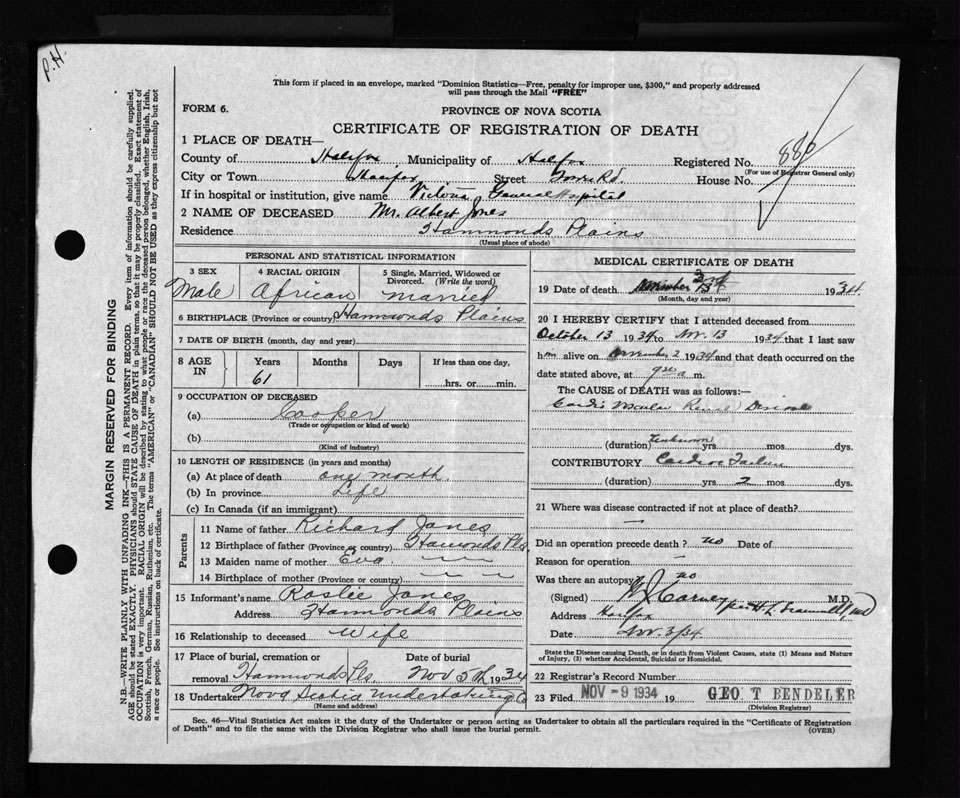 P.H.
This form if placed in an envelope, marked "Dominion Statistics—Free, penalty for improper use, $300," and properly addressed
will pass through the Mail "FREE"
FORM 6.
PROVINCE OF NOVA SCOTIA
CERTIFICATE OF REGISTRATION OF DEATH
1 PLACE OF DEATH—
County of Halifax Municipality of Halifax Registered No. 886
(For use of Registrar General only)
City or Town Halifax Street Rd. House No.
If in hospital or institution, give name Victoria General Hospital
2 NAME OF DECEASED Mr. Albert Jones
Residence Hammonds Plains
(Usual place of abode)
PERSONAL AND STATISTICAL INFORMATION
3 SEX Male
4 RACIAL ORIGIN African
5 Single, Married, Widowed or
Divorced. (Write the word)
married
6 BIRTHPLACE (Province or country) Hammonds Plains
7 DATE OF BIRTH (month, day and year)
8 AGE IN Years Months Days If less than one day,
61 hrs. or min.
9 OCCUPATION OF DECEASED
(a) Cooper
(Trade or occupation or kind of work)
(b)
(Kind of industry)
10 LENGTH OF RESIDENCE (in years and months)
(a) At place of death one month.
(b) In province Life
(c) In Canada (if an immigrant)
Parents
11 Name of father Richard Jones
12 Birthplace of father (Province or country) Hamonds Pls.
13 Maiden name of mother Eva
14 Birthplace of mother (Province or country)
15 Informant's name Roslie Jones
Address Hamonds Plains
16 Relationship to deceased Wife
17 Place of burial, cremation or Date of burial
removal Hammonds Pls. Nov 5th 1934
18 Undertaker Nova Scotia Undertaking Co
(Name and address)
MEDICAL CERTIFICATE OF DEATH
19 Date of death November 3rd 1934
(Month, day and year)
20 I HEREBY CERTIFY that I attended deceased from
October 13 1934 to Nov. 13 1934 that I last saw
him alive on November 2 1934 and that death occurred on
date stated above, at m.
The CAUSE OF DEATH was as follows:
Cardio Vascular Renal Disease
(duration) Unknown yrs mos. dys.
CONTRIBUTORY Cardiac Failure
(duration) yrs 2 mos. dys.
21 Where was disease contracted if not at place of death?
—
Did an operation precede death? no Date of
Reason for operation —
Was there an autopsy no
(Signed) M.D.
Address Halifax
Date Nov. 3/34
State the Disease causing Death, or in death from Violent Causes, state (1) Means and Nature
of Injury, (2) whether Accidental, Suicidal or Homicidal.
22 Registrar's Record Number
23 Filed NOV -9 1934 19 GEO T BENDELER
(Division Registrar)
Sec. 46—Vital Statistics Act makes it the duty of the Undertaker or person acting as Undertaker to obtain all the particulars required in the "Certificate of Registration
of Death" and to file the same with the Division Registrar who shall issue the burial permit.
(OVER)
MARGIN RESERVED FOR BINDING
N.B.—WRITE PLAINLY WITH UNFADING INK—THIS IS A PERMANENT RECORD. Every item of information should be carefully supplied.
AGE should be stated EXACTLY. PHYSICIANS should STATE CAUSE OF DEATH in plain terms, so that it may be properly classified. Exact statement of
OCCUPATION is very important. RACIAL ORIGIN will be described by stating to what people or race the deceased person belonged, whether English, Irish,
Scottish, French, German, Russian, Ruthenian, etc. The terms "AMERICAN" or "CANADIAN" SHOULD NOT BE USED as they express citizenship but not
a race or people. See instructions on back of certificate.